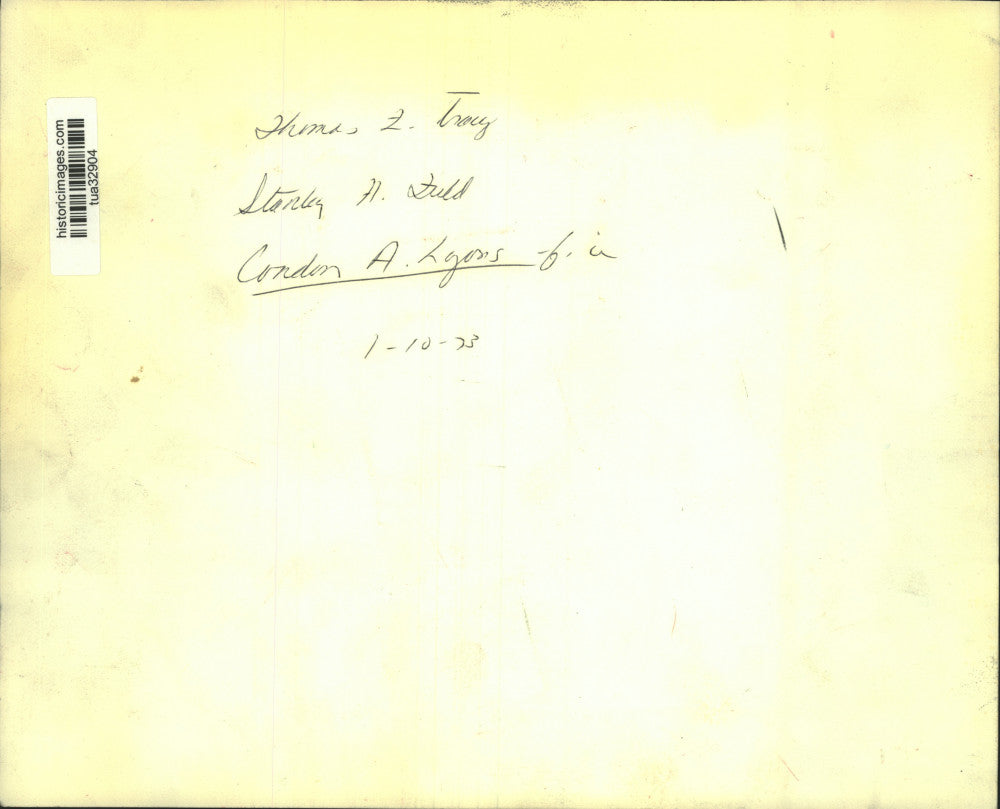 historicimages.com
tua32904
Thomas Z. Tracy
Stanley A. Fuld
Condon A. Lyons
1-10-73